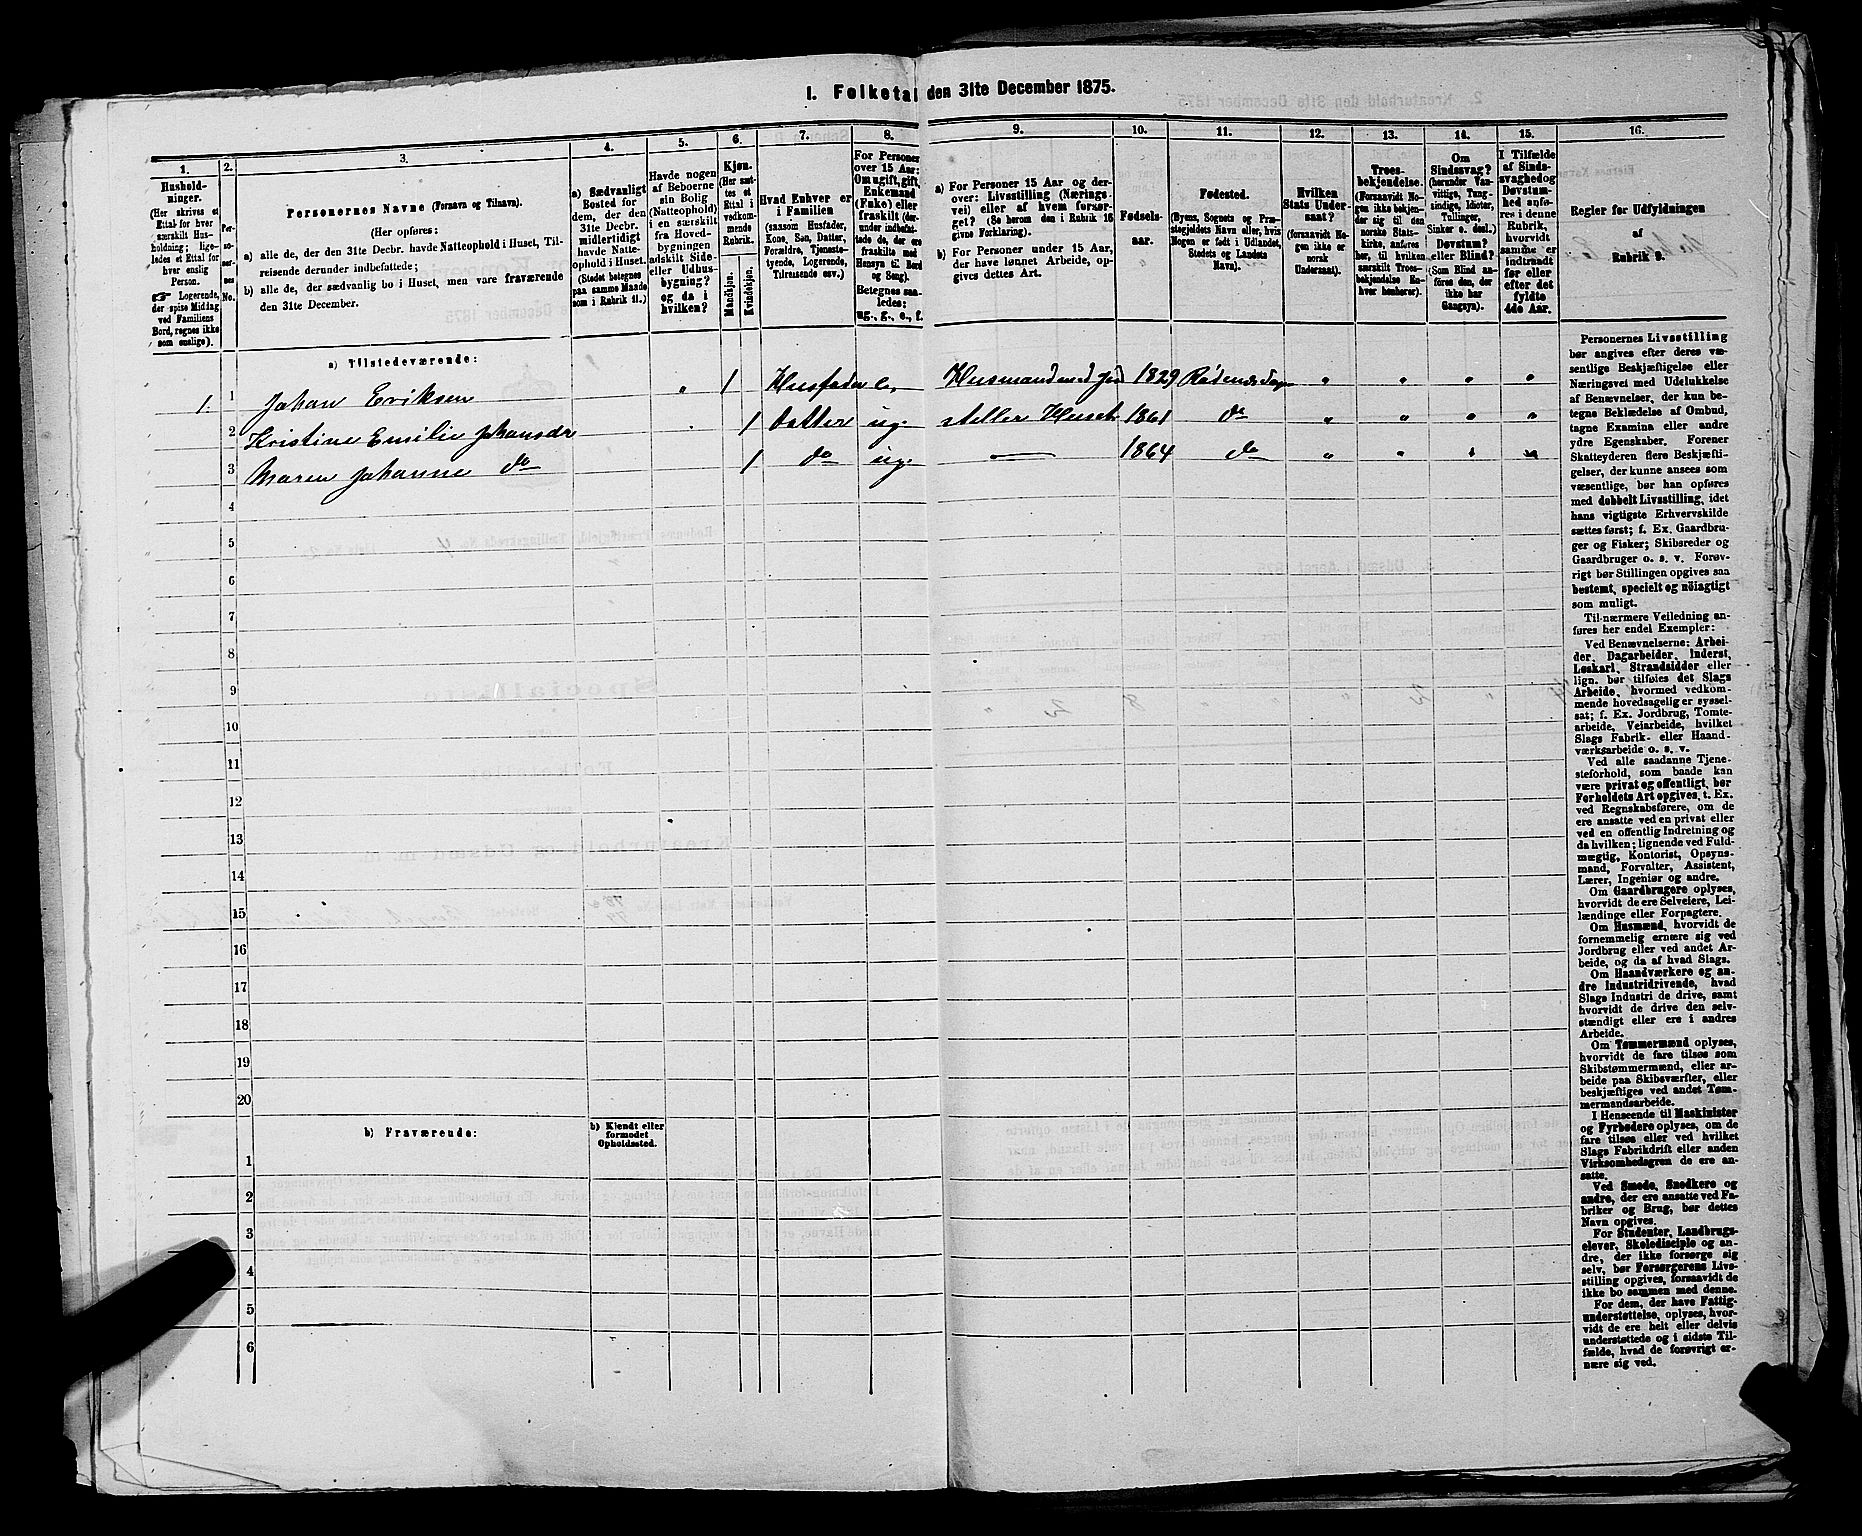 I. Folketal den 31te December 1875.
1.
2.
3.
4.
5.
6.
7.
8.
9.
10.
11.
12.
13.
14.
15.
16.
Hushold-
ninger.
(Her skrives et
Ettal for hver
særskilt Hus-
holdning; lige-
ledes et Ettal for
hver enslig
Person.
☞ Logerende,
der spise Middag
ved Familiens
Bord, regnes ikke
som enslige).
Per-
so-
ner-
nes
No.
Personernes Navne (Fornavn og Tilnavn).
(Her opføres:
a) alle de, der den 31te Decbr. havde Natteophold i Huset, Til-
reisende derunder indbefattede;
b) alle de, der sædvanlig bo i Huset, men vare fraværende
den 31te December.
a) Sædvanligt
Bosted for
dem, der den
31te Decbr.
midlertidigt
havde Natte-
ophold i Huset.
(Stedet betegnes
paa samme Maade
som i Rubrik 11.)
Havde nogen
af Beboerne
sin Bolig
(Natteophold)
i en særskilt
fra Hoved-
bygningen
adskilt Side-
eller Udhus-
bygning?
og da i
hvilken?
Kjøn.
(Her sæt-
tes et
Ettal i
vedkom-
mende
Rubrik.
Mandkjøn.
Kvindekjøn.
Hvad Enhver er
i Familien
(saasom Husfader,
Kone, Søn, Datter,
Forældre, Tjeneste-
tyende, Logerende,
Tilreisende osv.)
For Personer
over 15 Aar:
Om ugift, gift,
Enkemand
(Enke) eller
fraskilt (der-
under indbefat-
tede de, der ere
fraskilte med
Hensyn til Bord
og Seng).
Betegnes saa-
ledes:
ug., g., e., f.
a) For Personer 15 Aar og der-
over: Livsstilling (Nærings-
vei) eller af hvem forsør-
get? (Se herom den i Rubrik 16
givne Forklaring).
b) For Personer under 15 Aar,
der have lønnet Arbeide, op-
gives dettes Art.
Fødsels-
aar.
Fødested.
(Byens, Sognets og Præ-
stegjeldets Navn eller, hvis
Nogen er født i Udlandet,
Stedets og Landets
Navn).
Hvilken
Stats Under-
saat?
(forsaavidt No-
gen ikke er
norsk
Undersaat).
Troes-
bekjendelse.
(Forsaavidt No-
gen ikke bekjen-
der sig til den
norske Stats-
kirke, anføres
her, til hvilken
særskilt Troes-
bekjendelse En-
hver henhører).
Om
Sindssvag?
(herunder Van-
vittige, Tung-
sindige, Idioter,
Tullinger,
Sinker o. desl.)
Døvstum?
eller Blind?
(Som Blind an-
føres den, der
ikke har
Gangsyn).
I Tilfælde
af Sinds-
svaghed og
Døvstum-
hed anfø-
res i denne
Rubrik,
hvorvidt
samme er
indtraadt
før eller
efter det
fyldte
4de Aar.
Regler for Udfyldningen
af
Rubrik 9.
a) Tilstedeværende:
1. 1 Johan Eriksen „ 1 Husfader e. Husmand med Jord 1829 Rødenes Sogn „ „ „ „
2 Kristine Emilie Johansdr 1 Datter ug. steller Huset 1861 do „ „ „ „
3 Maren Johanne do 1 do ug. — 1864 do „ „ „ „
4
5
6
7
8
9
10
11
12
13
14
15
16
17
18
19
20
b) Fraværende:
b) Kjendt eller
formodet
Opholdssted.
1
2
3
4
5
6
Personernes Livsstilling
bør angives efter deres væ-
sentlige Beskjæftigelse eller
Næringsvei med Udelukkelse
af Benævnelser, der kun be-
tegne Beklædelse af Ombud,
tagne Examina eller andre
ydre Egenskaber. Forener
Skatteyderen flere Beskjæfti-
gelser, der kunne ansees som
væsentlige, bør han opføres
med dobbelt Livsstilling, idet
hans vigtigste Erhvervskilde
sættes først; f. Ex. Gaardbru-
ger og Fisker; Skibsreder og
Gaardbruger o. s. v. Forøv-
rigt bør Stillingen opgives saa
bestemt, specielt og nöiagtigt
som muligt.
Til nærmere Veiledning an-
føres her endel Exempler:
Ved Benævnelserne: Arbei-
der, Dagarbeider, Inderst,
Løskarl, Strandsidder eller
lign. bør tilføies det Slags
Arbeide, hvormed vedkom-
mende hovedsagelig er syssel-
sat; f. Ex. Jordbrug, Tomte-
arbeide, Veiarbeide, hvilket
Slags Fabrik- eller Haand-
værksarbeide o. s. v.
Ved alle saadanne Tjene-
steforhold, som baade kan
være privat og offentligt, bør
Forholdets Art opgives, t. Ex.
ved Regnskabsførere, om de
ere ansatte ved en privat eller
ved en offentlig Indretning og
da hvilken; lignende ved Fuld-
mægtig, Kontorist, Opsyns-
mand, Forvalter, Assistent,
Lærer, Ingeniør og andre.
Om Gaardbrugere oplyses,
hvorvidt de ere Selveiere, Lei-
lændinge eller Forpagtere.
Om Husmænd, hvorvidt de
fornemmelig ernære sig ved
Jordbrug eller ved andet Ar-
beide, og da af hvad Slags.
Om Haandværkere og an-
dre Industridrivende, hvad
Slags Industri de drive, samt
hvorvidt de drive den selv-
stændigt eller ere i andres
Arbeide.
Om Tømmermænd oplyses,
hvorvidt de fare tilsøs som
Skibstømmermænd, eller ar-
beide paa Skibsværfter, eller
beskjæftiges ved andet Tøm-
mermandsarbeide.
I Henseende til Maskinister
og Fyrbødere oplyses, om de
fare tilsøs eller ved hvilket
Slags Fabrikdrift eller anden
Virksomhedsgren de ere an-
satte.
Ved Smede, Snedkere og
andre, der ere ansatte ved Fa-
briker og Brug, bør dettes
Navn opgives.
For Studenter, Landbrugs-
elever, Skoledisciple og an-
dre, der ikke forsørge sig
selv, bør Forsørgerens Livs-
stilling opgives, forsaavidt de
ikke bo sammen med denne.
For dem, der have Fattig-
understøttelse, oplyses, hvor-
vidt de ere helt eller delvis
understøttede og i sidste Til-
fælde, hvad de forøvrigt er-
nære sig ved.